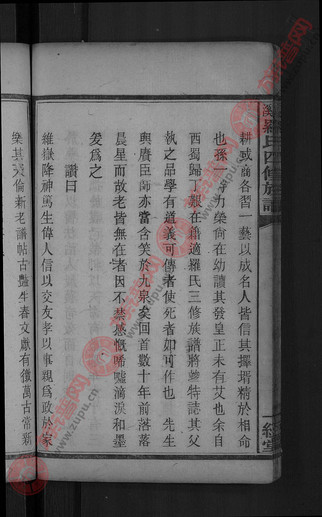 羅氏四修族譜
耕或商各習一藝以成名人皆信其擇壻精於相命
也孫一力榮尚在幼讀其發皇正未有艾也余自
西蜀歸丁艱在籍適羅氏三修族譜將鋟特誌其父
執之品學有道義可傳者使死者如可作也 先生
與賡臣師亦當含笑於九泉矣回首數十年前落落
晨星而故老皆無在者因不禁感慨唏噓滴淚和墨
爰為之
讚曰
維嶽降神篤生偉人信以交友孝以事親政於家
樂其天倫新老譜帖古豔生春文獻有徵萬古常新